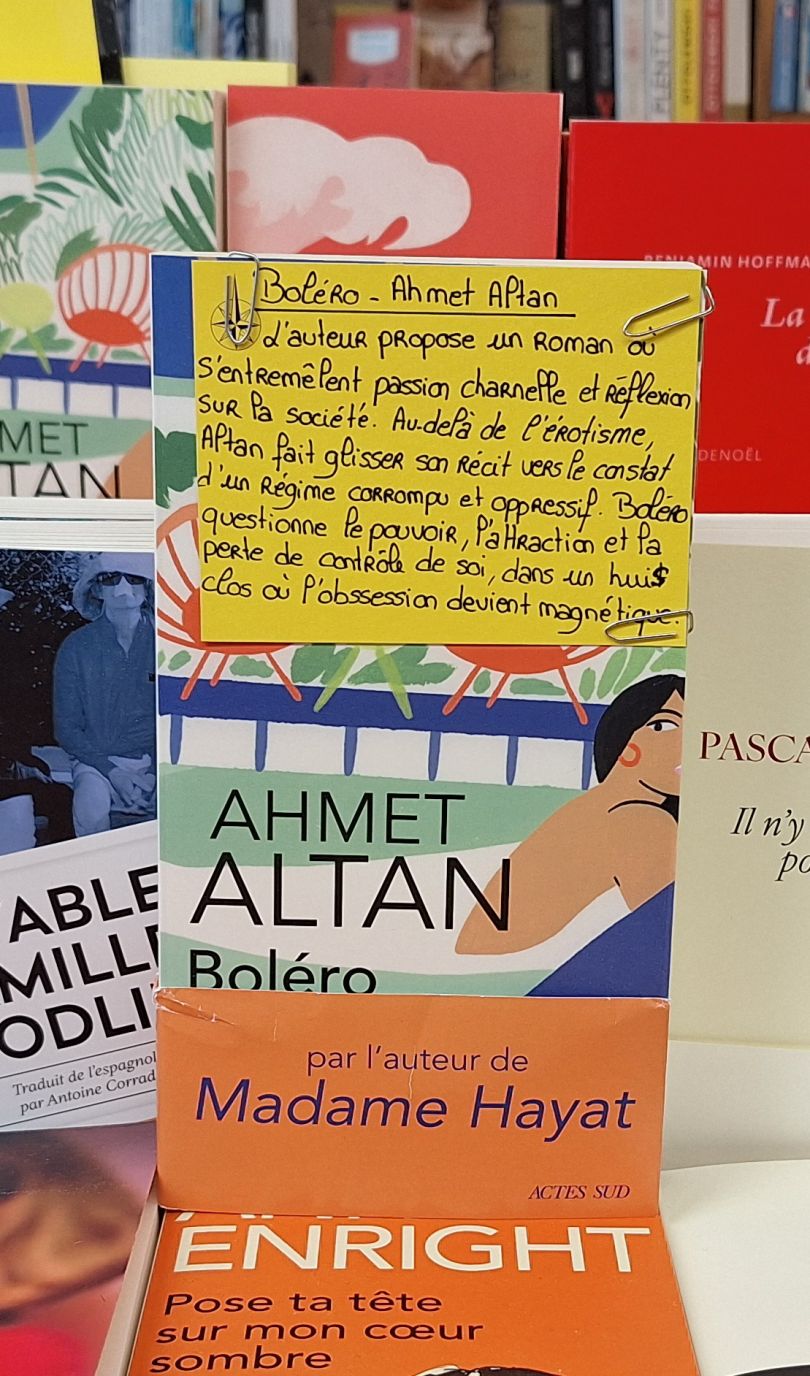 PLENTY
BENJAMIN HOFFMA
La
d
DENOËL
MET
TAN
Boléro - Ahmet Altan
L'auteur propose un Roman où
s'entremêlent passion charnelle et réflexion
sur la société. Au-delà de l'érotisme,
Altan fait glisser son récit vers le constat
d'un Régime corrompu et oppressif. Boléro
questionne le pouvoir, l'attraction et la
perte de contrôle de soi, dans un huis
clos où l'obssession devient magnétique.
AHMET
ALTAN
Boléro
par l'auteur de
Madame Hayat
ACTES SUD
ABLE
MILL
ODLI
Traduit de l'espagnol
par Antoine Corrad
PASCA
Il n'y
po
ENRIGHT
Pose ta tête
sur mon cœur
sombre